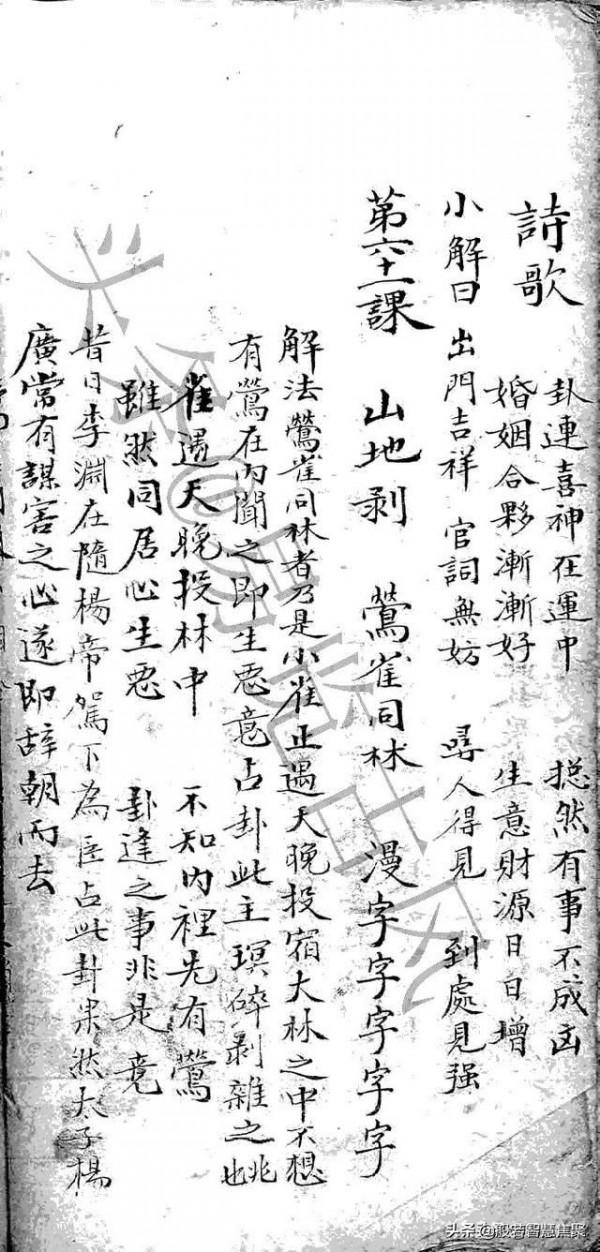 詩歌
卦連喜神在運中 捴然有事不成凶
婚姻合夥漸漸好 生意財源日日增
小解曰 出門吉祥 官詞無妨 尋人得見 到處見强
第六十一課 山地剥 鶯雀同林 漫字字字字字
解法鶯雀同林者乃是小雀正遇天晚投宿大林之中不想
有鶯在内聞之即生惡意占卦此主琪碎剥雜之兆也
雀遇天晚投林中 不知内裡先有鶯
雖然同居心生惡 卦逢之事非是竟
昔日李淵在隨楊帝駕下為臣占此卦果然太子楊
廣常有謀害之心遂即辞朝而去
头条@易览古风
头条@般若智慧集聚